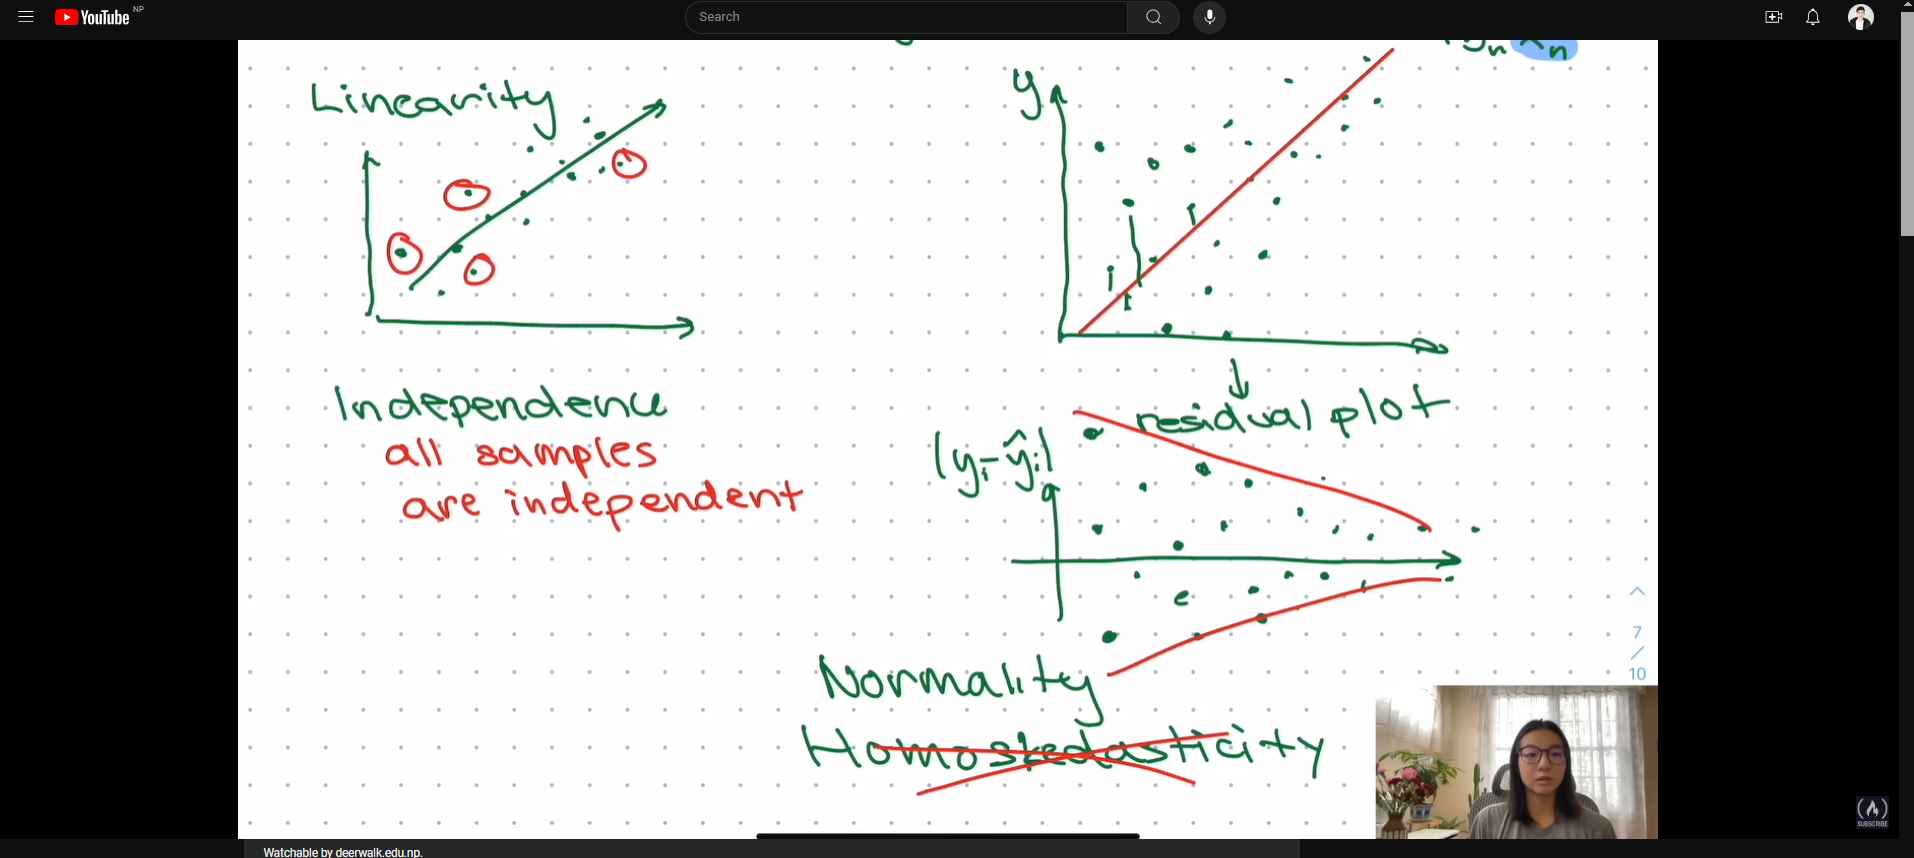 YouTube NP
Search
Linearity
y
Independence
all samples
are independent
residual plot
|yᵢ-ŷᵢ|
Normality
Homoskedasticity
7
/
10
SUBSCRIBE
Watchable by deerwalk.edu.np.